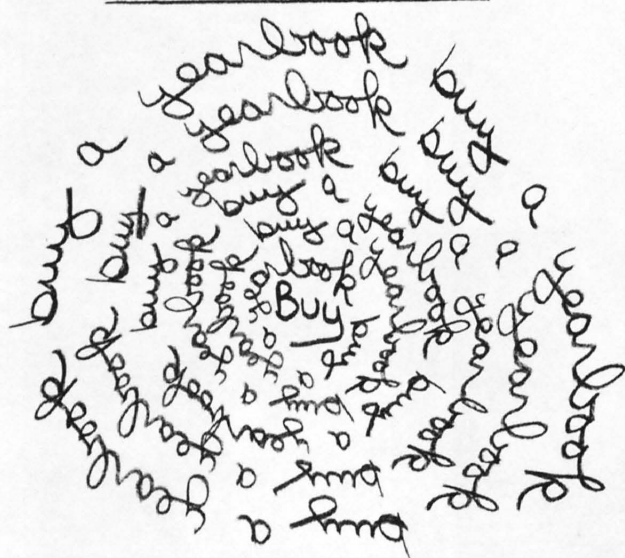 Buy a yearbook
buy a yearbook
buy a yearbook
buy a yearbook
buy a yearbook
buy a yearbook
buy a yearbook
buy a yearbook
buy a yearbook
buy a yearbook
buy a yearbook
buy a yearbook
buy a yearbook